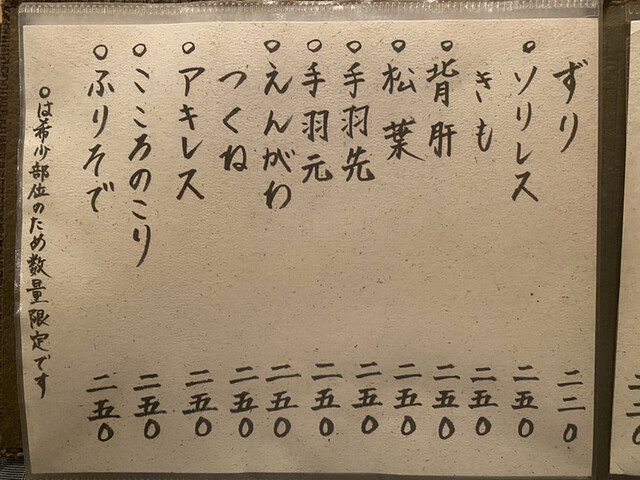 ずり 二二〇
○ソリレス 二五〇
きも 二五〇
○背肝 二五〇
○松葉 二五〇
○手羽先 二五〇
○手羽元 二五〇
○えんがわ 二五〇
つくね 二五〇
○アキレス 二五〇
○こころのこり 二五〇
○ふりそで 二五〇
○は希少部位のため数量限定です